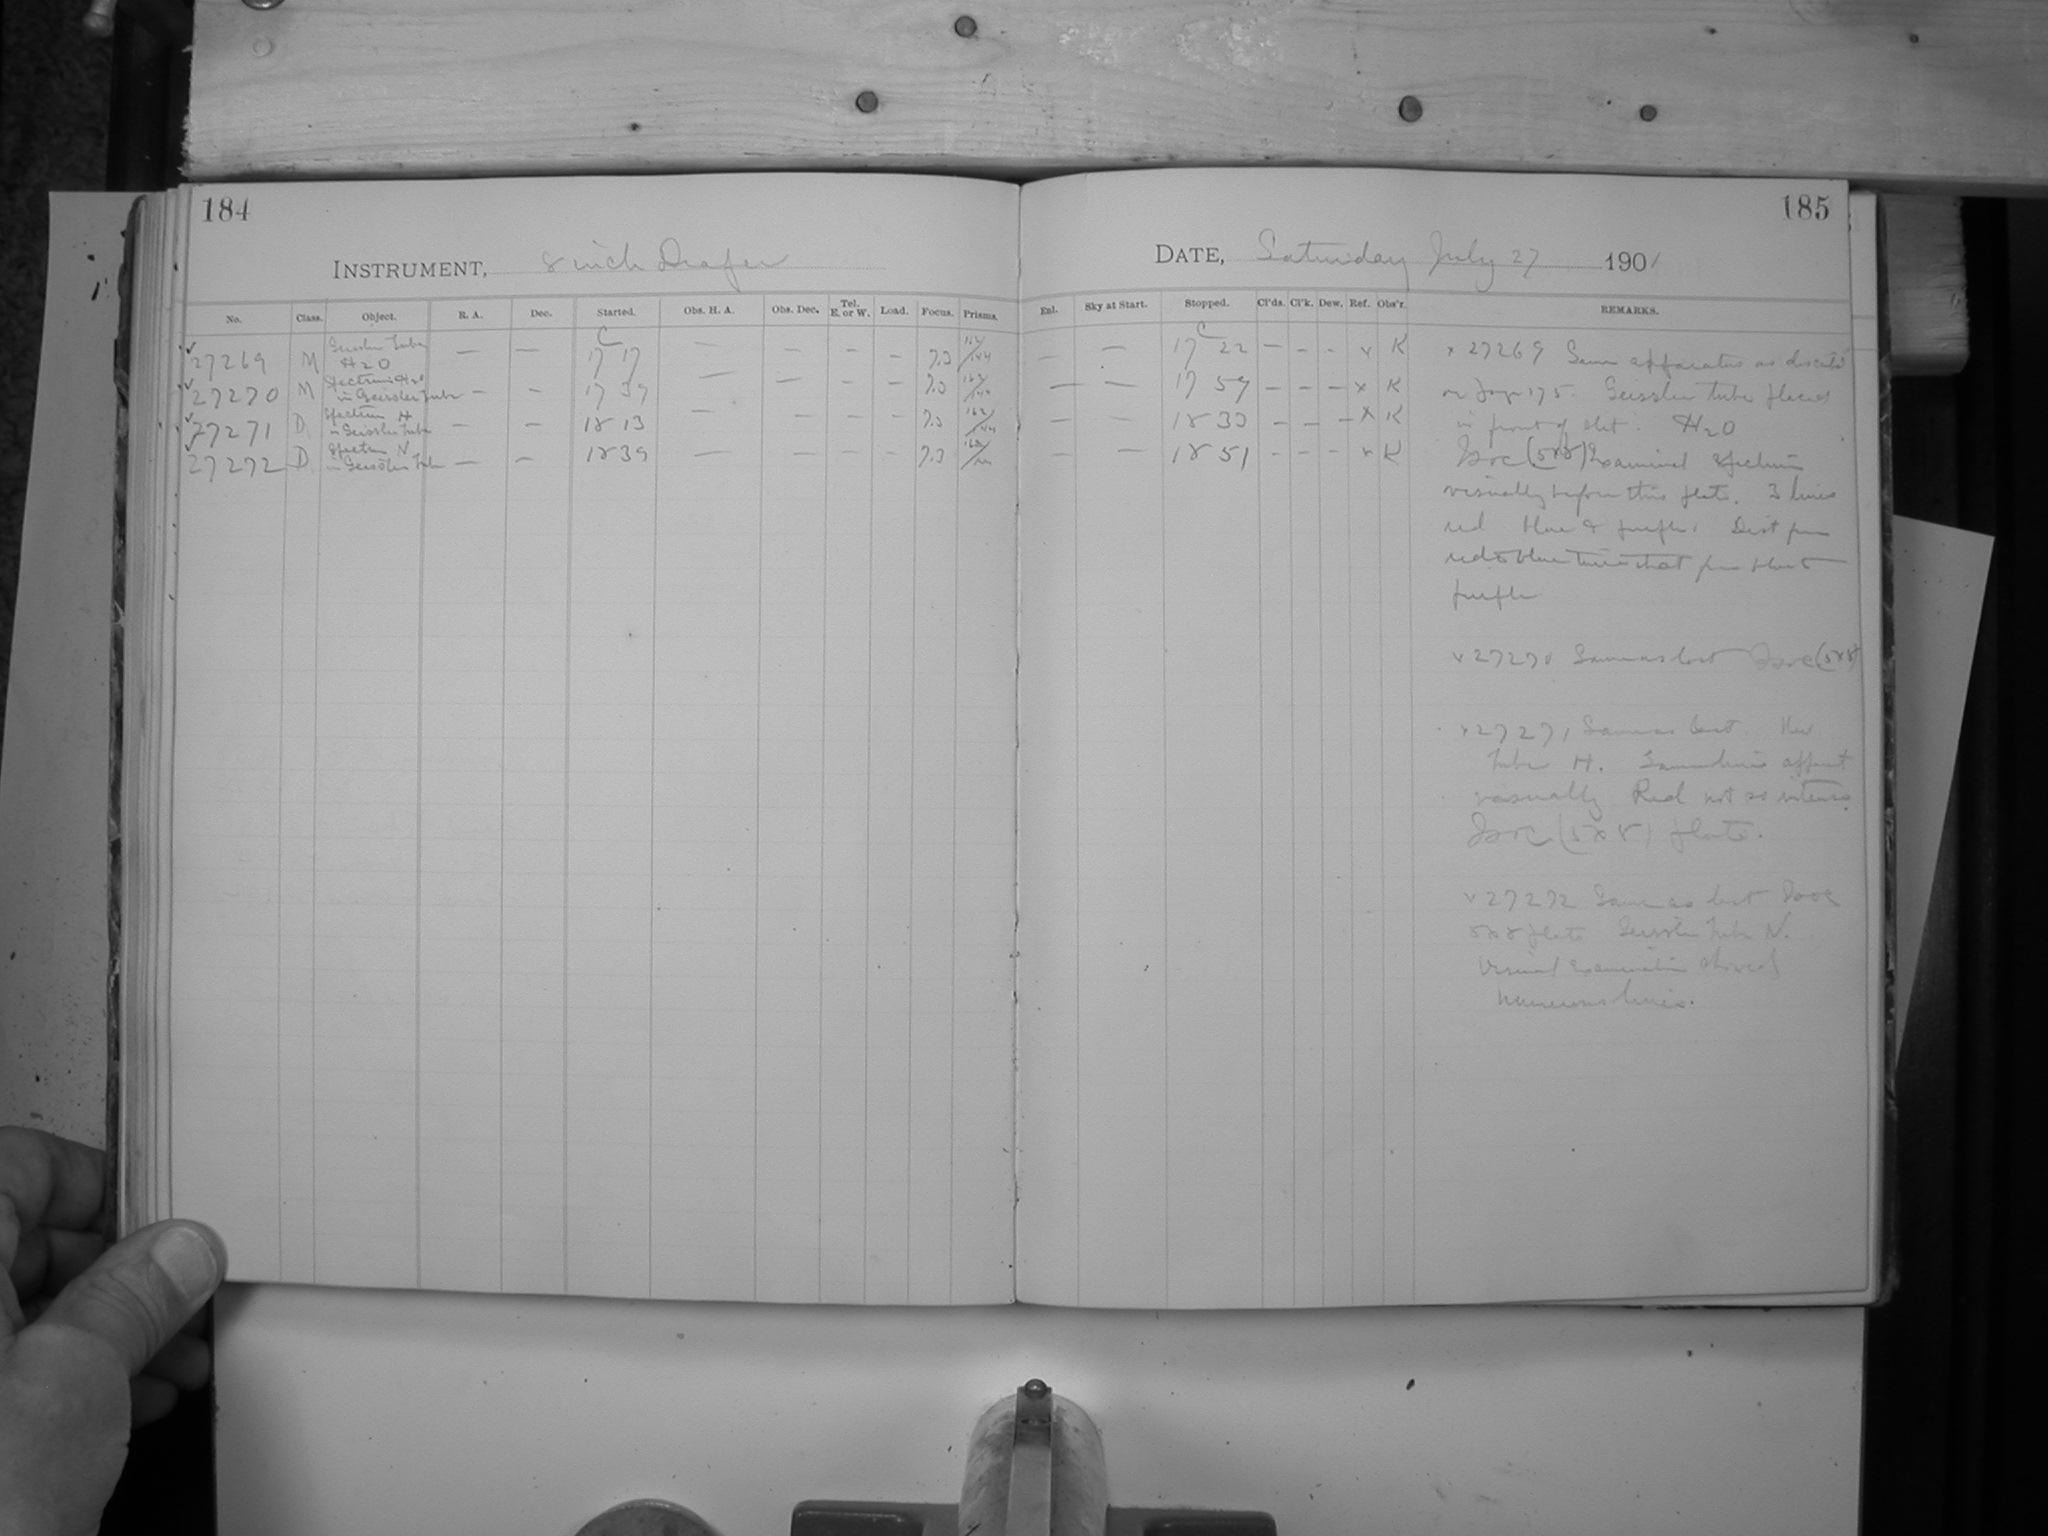 184
185
INSTRUMENT, 8 inch Draper
DATE, Saturday July 27 1901
No. Class. Object. R. A. Dec. Started. Obs. H. A. Obs. Dec. Tel. E. or W. Load. Focus. Prisms.
Enl. Sky at Start. Stopped. Cl'ds. Cl'k. Dew. Ref. Obs'r. REMARKS.
27269 M Geissler Tube H2O — — C 17 17 — — — — 7.3
— — C 17 22 — - - x K
27270 M Spectrum H2O in Geissler Tube — — 17 39 — — — — 7.3
— — 17 59 — — — x K
27271 D Spectrum H in Geissler Tube — — 18 13 — — — — 7.3
— — 18 33 — — — x K
27272 D Spectrum N in Geissler Tube — — 18 39 — — — — 7.3
— — 18 51 - - — x K
x 27269 Same apparatus as
on page 175. Geissler tube placed
in front of slit. H2O
(5x8) Examined spectrum
visually before this plate. 3 lines
red blue & purple. Dist from
red to blue twice that from blue to
purple
x 27270 Same as last (5x8)
x 27271 Same as last. New
Tube H. Same lines
visually Red not so intense.
(5x8) plate.
x 27272 Same as last
5x8 plate Geissler Tube N.
Visual examination showed
numerous lines.